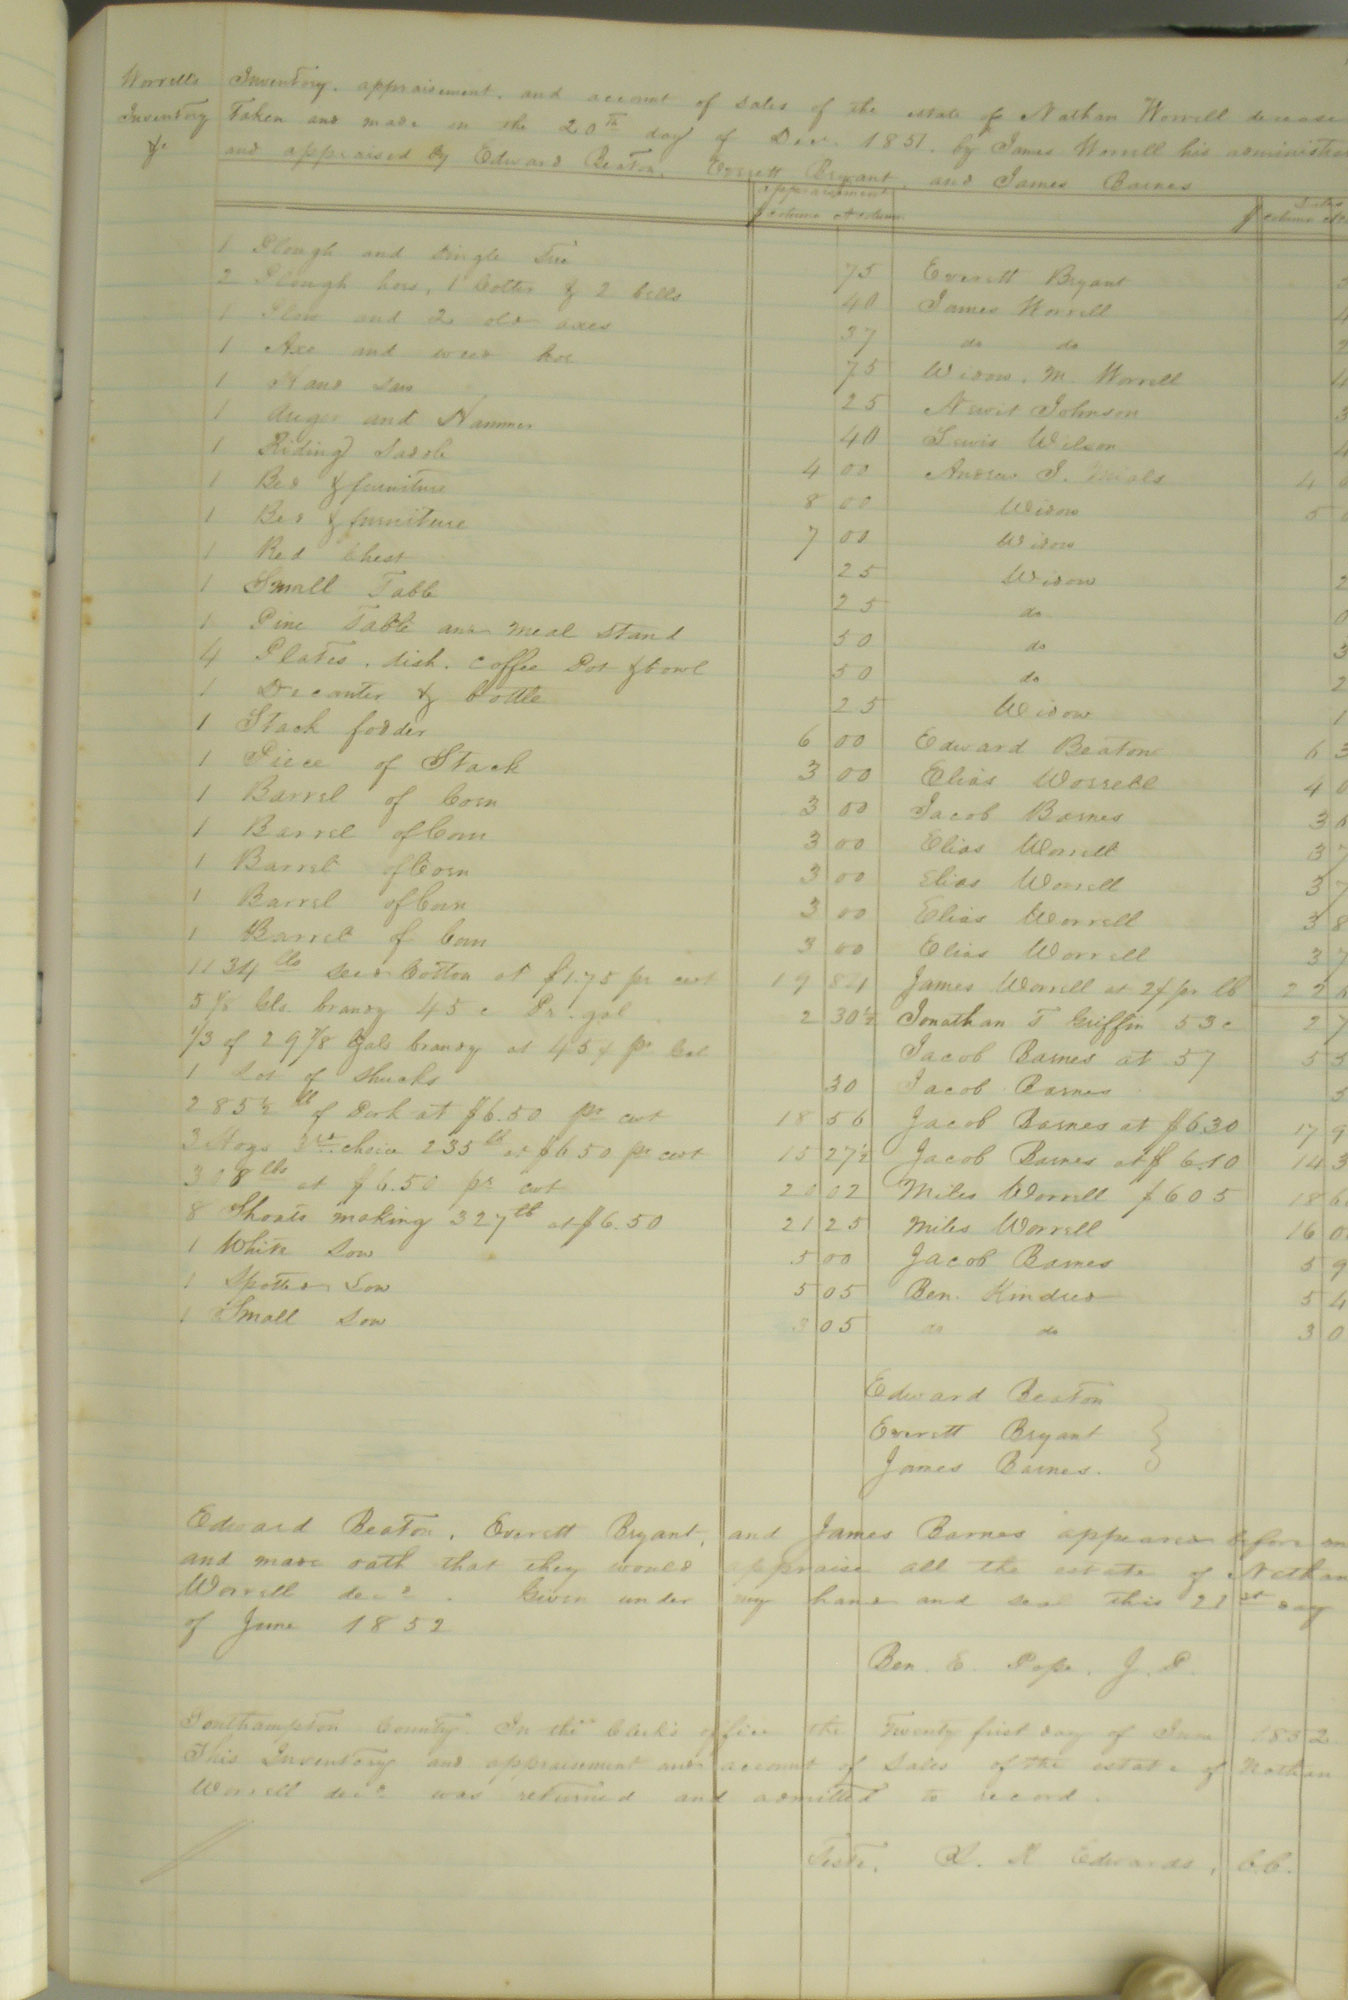 Worrell's
Inventory
&c
Inventory, appraisement, and account of sales of the estate of Nathan Worrell decease
Taken and made on the 20th day of Decr 1851. by James Worrell his administra
and appraised by Edward Beaton, Everett Bryant, and James Barnes
appraisement
$ column ct column $ column
1 Plough and single Tree 75 Everett Bryant
2 Plough hoes, 1 Colter & 2 bells 40 James Worrell
1 Plow and 2 old axes 37 do do
1 Axe and weed hoe 75 Widow, M. Worrell
1 Hand Saw 25 Newit Johnson
1 Auger and Hammer 40 Lewis Wilson
1 Riding Saddle 4 00 Andrew J. 4
1 Bed & furniture 8 00 Widow 5
1 Bed & furniture 7 00 Widow
1 Red Chest 25 Widow
1 Small Table 25 do
1 Pine Table and meal stand 50 do
4 Plates, dish, coffee Pot & bowl 50 do
1 Decanter & bottle 25 Widow
1 Stack fodder 6 00 Edward Beaton 6 3
1 Piece of Stack 3 00 Elias Worrell 4 0
1 Barrel of Corn 3 00 Jacob Barnes 3
1 Barrel of Corn 3 00 Elias Worrell 3 7
1 Barrel of Corn 3 00 Elias Worrell 3 7
1 Barrel of Corn 3 00 Elias Worrell 3 8
1 Barrel of Corn 3 00 Elias Worrell 3 7
1134 lbs seed Cotton at $1.75 pr cwt 19 84 James Worrell at 2¢ pr lb 22
5 1/8 Gls. brandy 45 c Pr. gal 2 30½ Jonathan T Griffin 53 c 2 7
1/3 of 29 7/8 Gals brandy at 45¢ pr Gal Jacob Barnes at 57 5 5
1 Lot of shucks 30 Jacob Barnes
285½ lb of Pork at $6.50 pr cwt 18 56 Jacob Barnes at $6.30 17 9
3 Hogs 3rd choice 235 lb at $6.50 pr cwt 15 27½ Jacob Barnes at $6.10 14 3
308 lbs at $6.50 pr cwt 20 02 Miles Worrell $6 05 18 6
8 Shoats making 327 lb at $6.50 21 25 Miles Worrell 16 0
1 White Sow 5 00 Jacob Barnes 5 9
1 Spotted Sow 5 05 Ben. Kindred 5 4
1 Small Sow 3 05 do do 3 0
Edward Beaton
Everett Bryant
James Barnes.
Edward Beaton, Everett Bryant, and James Barnes appeared before me
and made oath that they would appraise all the estate of Nathan
Worrell decd. Given under my hand and seal this 21st day
of June 1852
Ben. E. Pope, J. P.
Southampton County. In the Clerk's office the Twenty first day of June 1852
This Inventory and appraisement and account of Sales of the estate of Nathan
Worrell decd was returned and admitted to record.
Teste, L. R Edwards, C.C.